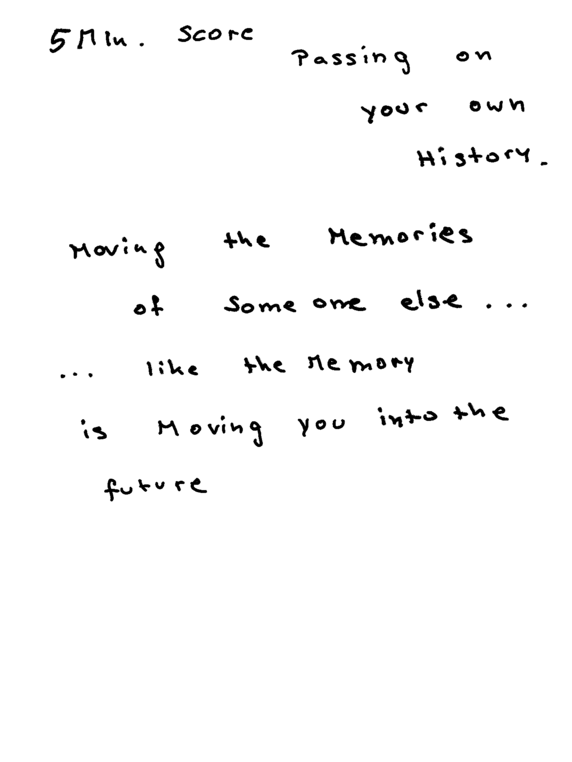 5 Min. Score
Passing on
your own
History.
Moving the Memories
of some one else ...
... like the Memory
is Moving you into the
future